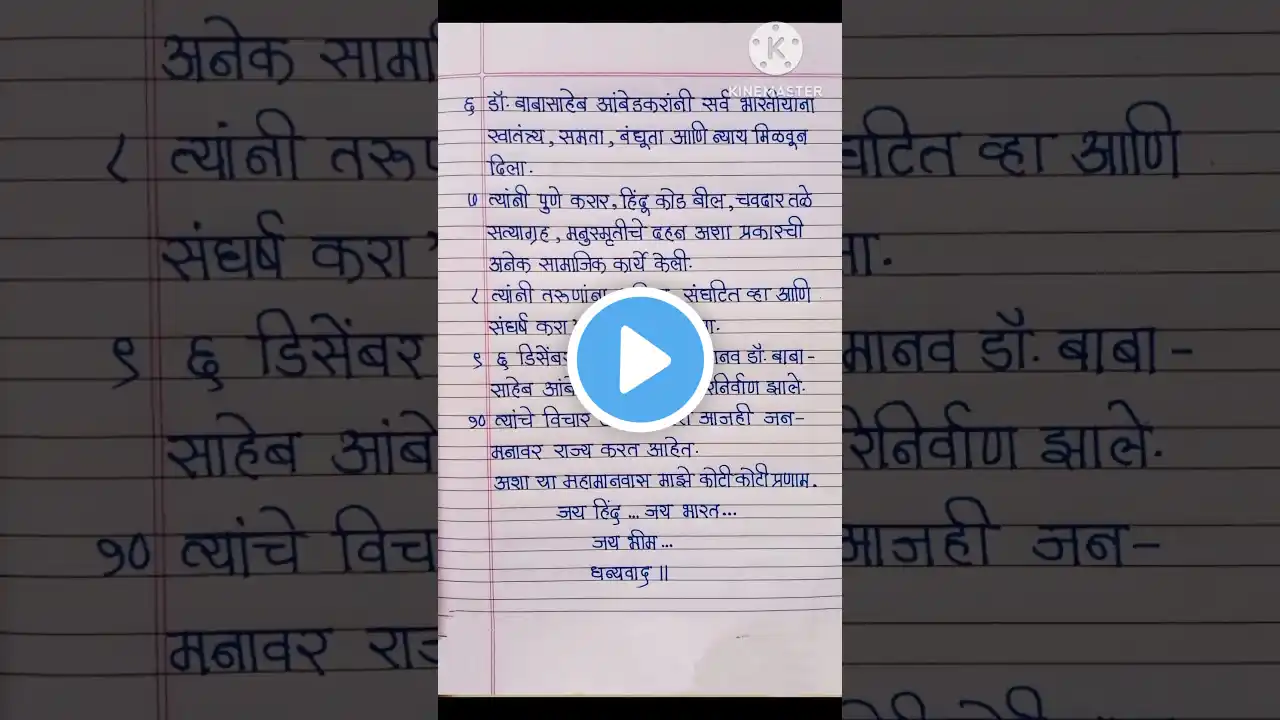 KINEMASTER
६ डॉ. बाबासाहेब आंबेडकरांनी सर्व भारतीयांना
स्वातंत्र्य, समता, बंधूता आणि न्याय मिळवून
दिला.
७ त्यांनी पुणे करार, हिंदू कोड बील, चवदार तळे
सत्याग्रह, मनुस्मृतीचे दहन अशा प्रकारची
अनेक सामाजिक कार्ये केली.
८ त्यांनी तरूणांना संघटित व्हा आणि
संघर्ष करा
९ ६ डिसेंबर मानव डॉ. बाबा-
साहेब आंबे रिनिर्वाण झाले.
१० त्यांचे विचार आजही जन-
मनावर राज्य करत आहेत.
अशा या महामानवास माझे कोटी कोटी प्रणाम.
जय हिंद ... जय भारत...
जय भीम...
धन्यवाद ||